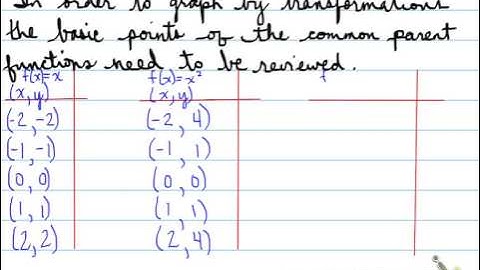 In order to graph by transformations
the basic points of the common parent
functions need to be reviewed.
f(x)=x f(x)=x² f
(x,y) (x,y)
(-2,-2) (-2,4)
(-1,-1) (-1,1)
(0,0) (0,0)
(1,1) (1,1)
(2,2) (2,4)